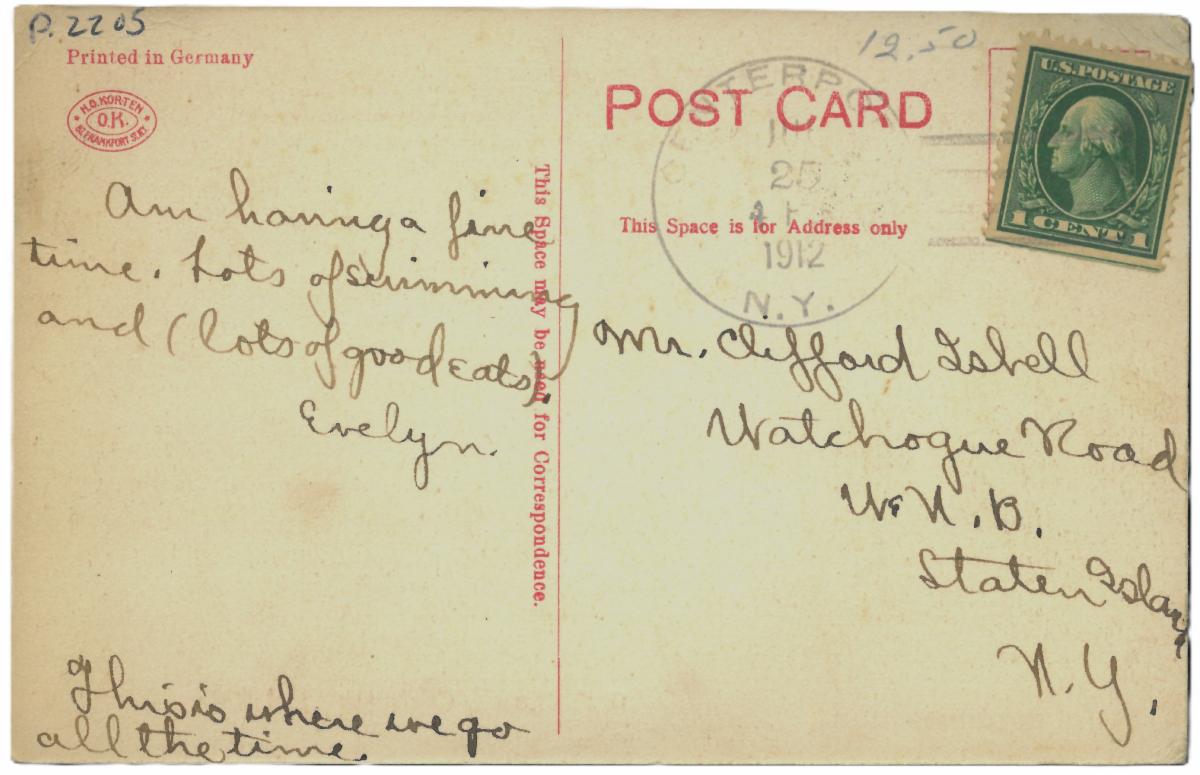 P.2205
Printed in Germany
H.O. KORTEN
O.K.
FRANKFORT
Am having a fine
time. Lots of swimming
and (lots of good eats).
Evelyn.
This is where we go
all the time.
This Space may be used for Correspondence.
12.50
POST CARD
This Space is for Address only
25
1912
N.Y.
U.S. POSTAGE
1 CENT 1
Mr. Clifford Isbell
Watchogue Road
W. N. B.
Staten Island
N.Y.